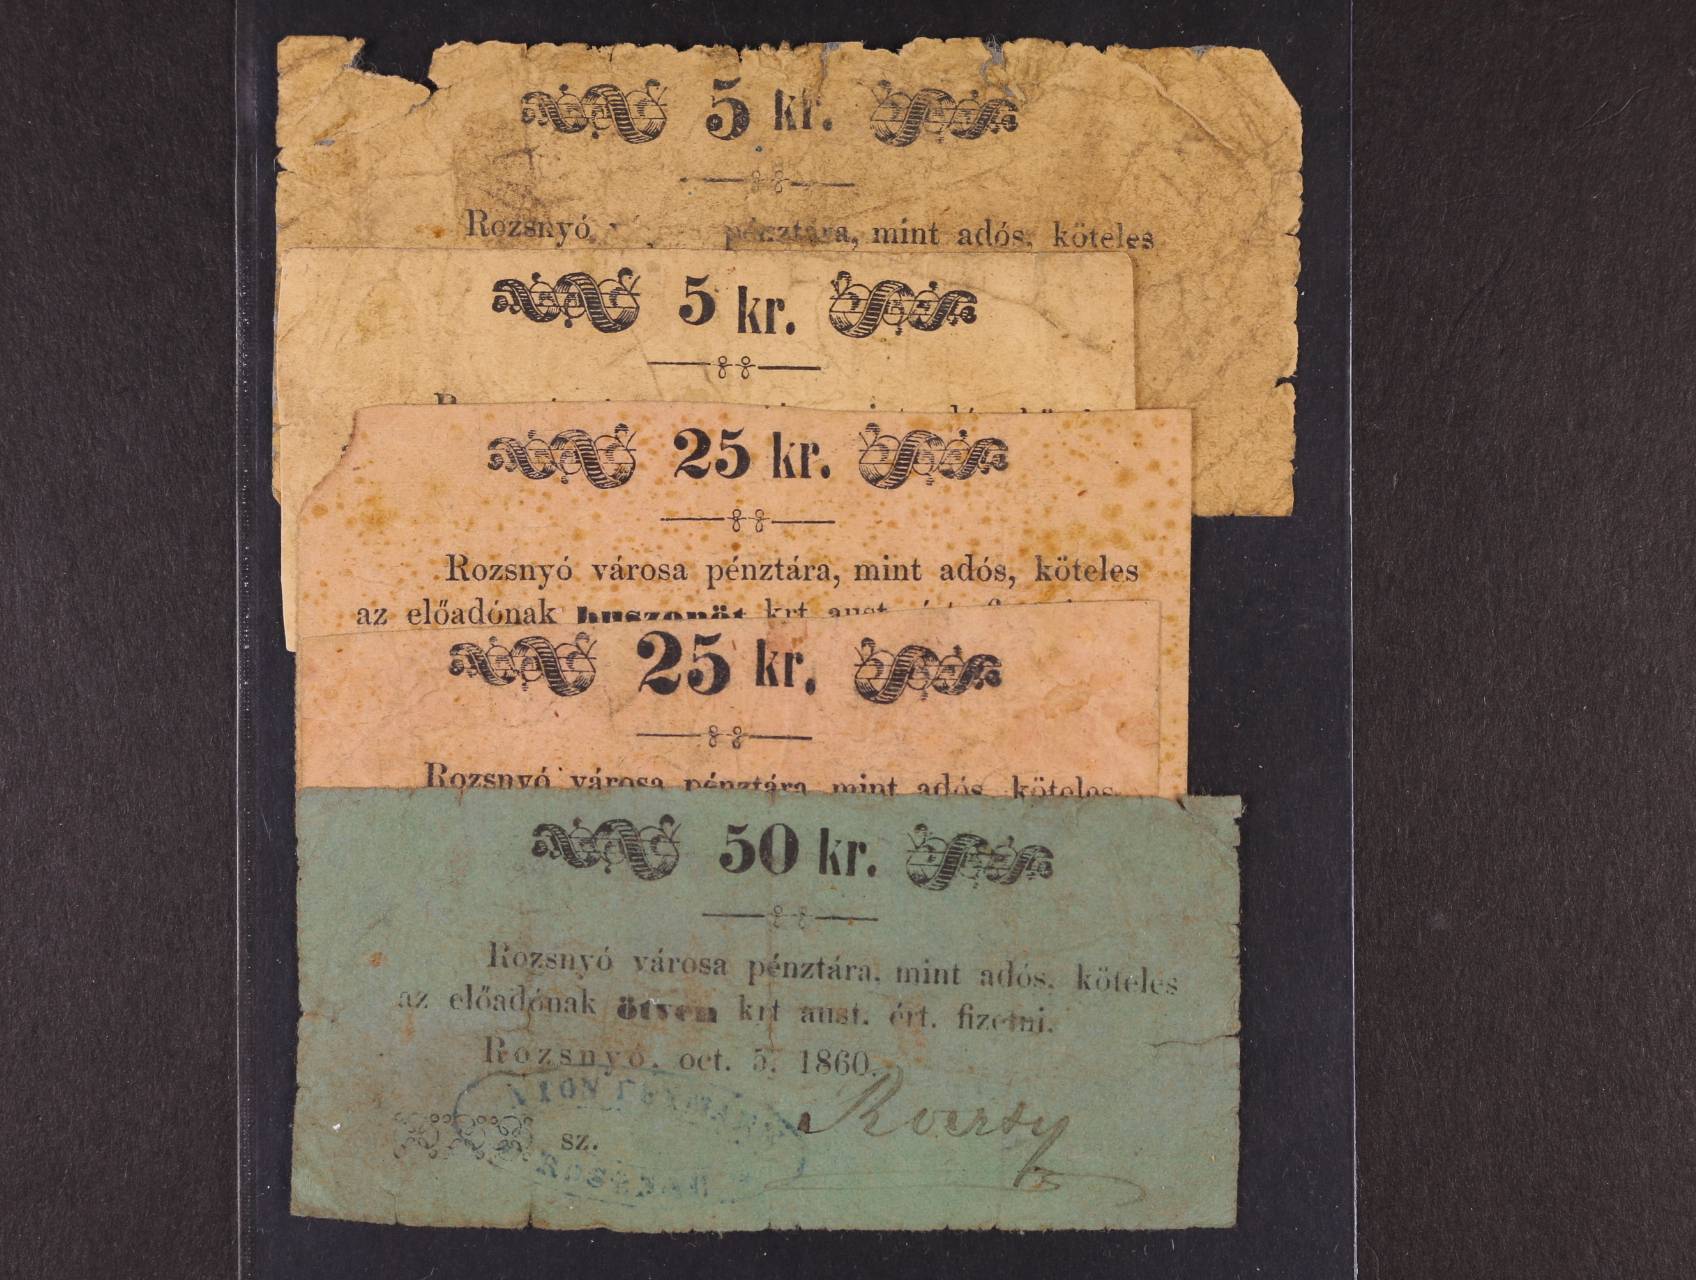 5 kr.
Rozsnyó pénztára, mint adós, köteles
5 kr.
25 kr.
Rozsnyó városa pénztára, mint adós, köteles
az előadónak huszonöt krt aust.
25 kr.
Rozsnyó városa pénztára mint adós, köteles
50 kr.
Rozsnyó városa pénztára, mint adós, köteles
az előadónak ötven krt aust. ért. fizetni.
Rozsnyó, oct. 5. 1860.
sz.